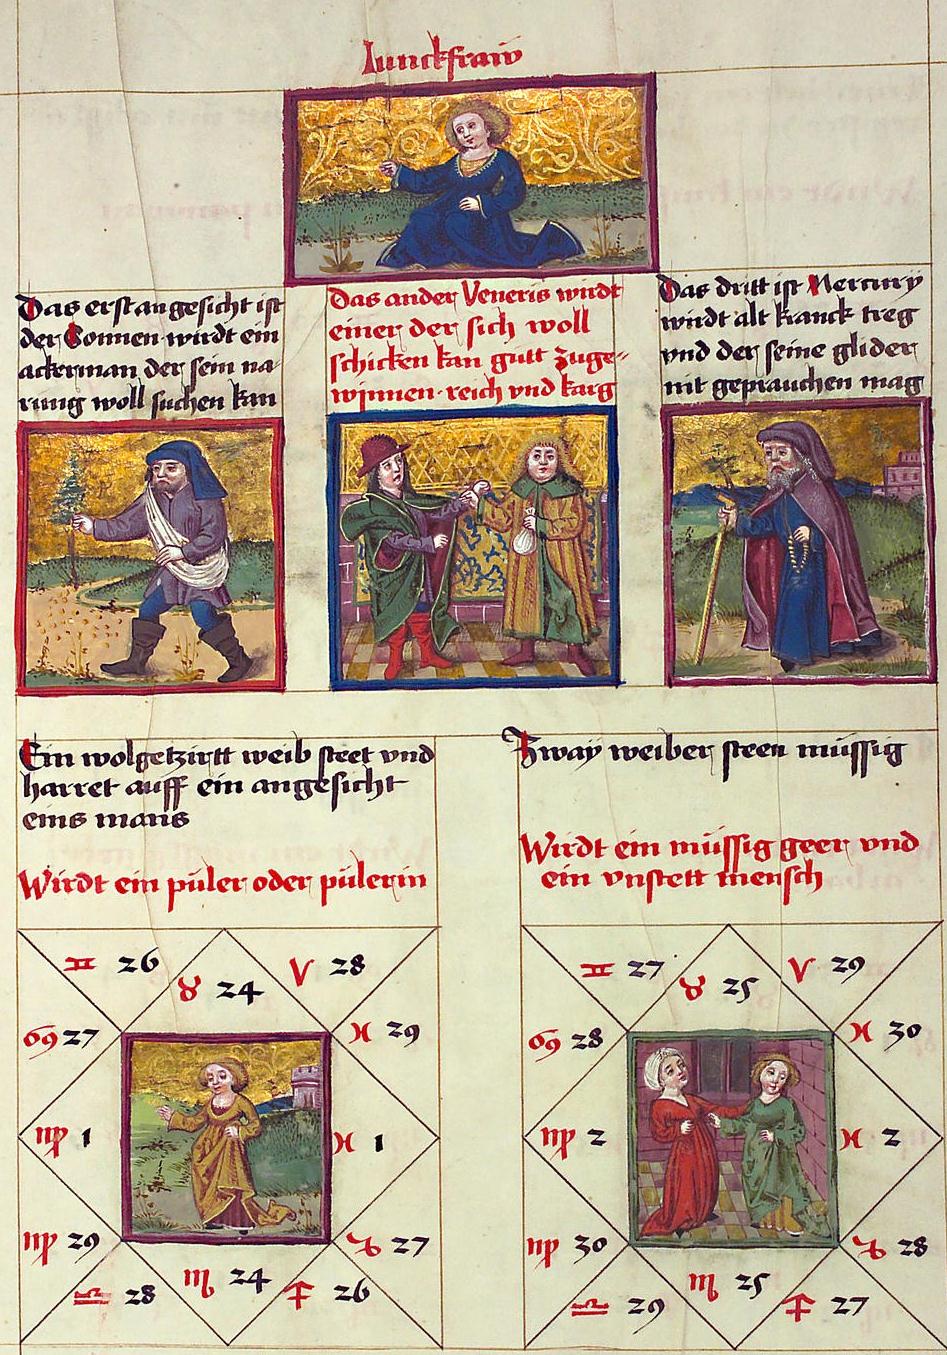 Iunckfraw
Das erst angesicht ist
der Sonnen wirdt ein
ackerman der sein na-
rung woll suchen kan
Das ander Veneris wirdt
einer der sich woll
schicken kan gutt zuge-
winnen · reich vnd karg
Das dritt ist Mercurÿ
wirdt alt kranck treg
vnd der seine glider
nit geprauchen mag
Ein wolgetzirtt weib steet vnd
harret auff ein angesicht
eins mans
Wirdt ein puler oder pulerin
♊ 26
♉ 24
♈ 28
♋ 27
♓ 29
♍ 1
♓ 1
♍ 29
♑ 27
♎ 28
♏ 24
♐ 26
Zway weiber steen müssig
Wirdt ein müssig geer vnd
ein vnstett mensch
♊ 27
♉ 25
♈ 29
♋ 28
♓ 30
♍ 2
♓ 2
♍ 30
♑ 28
♎ 29
♏ 25
♐ 27